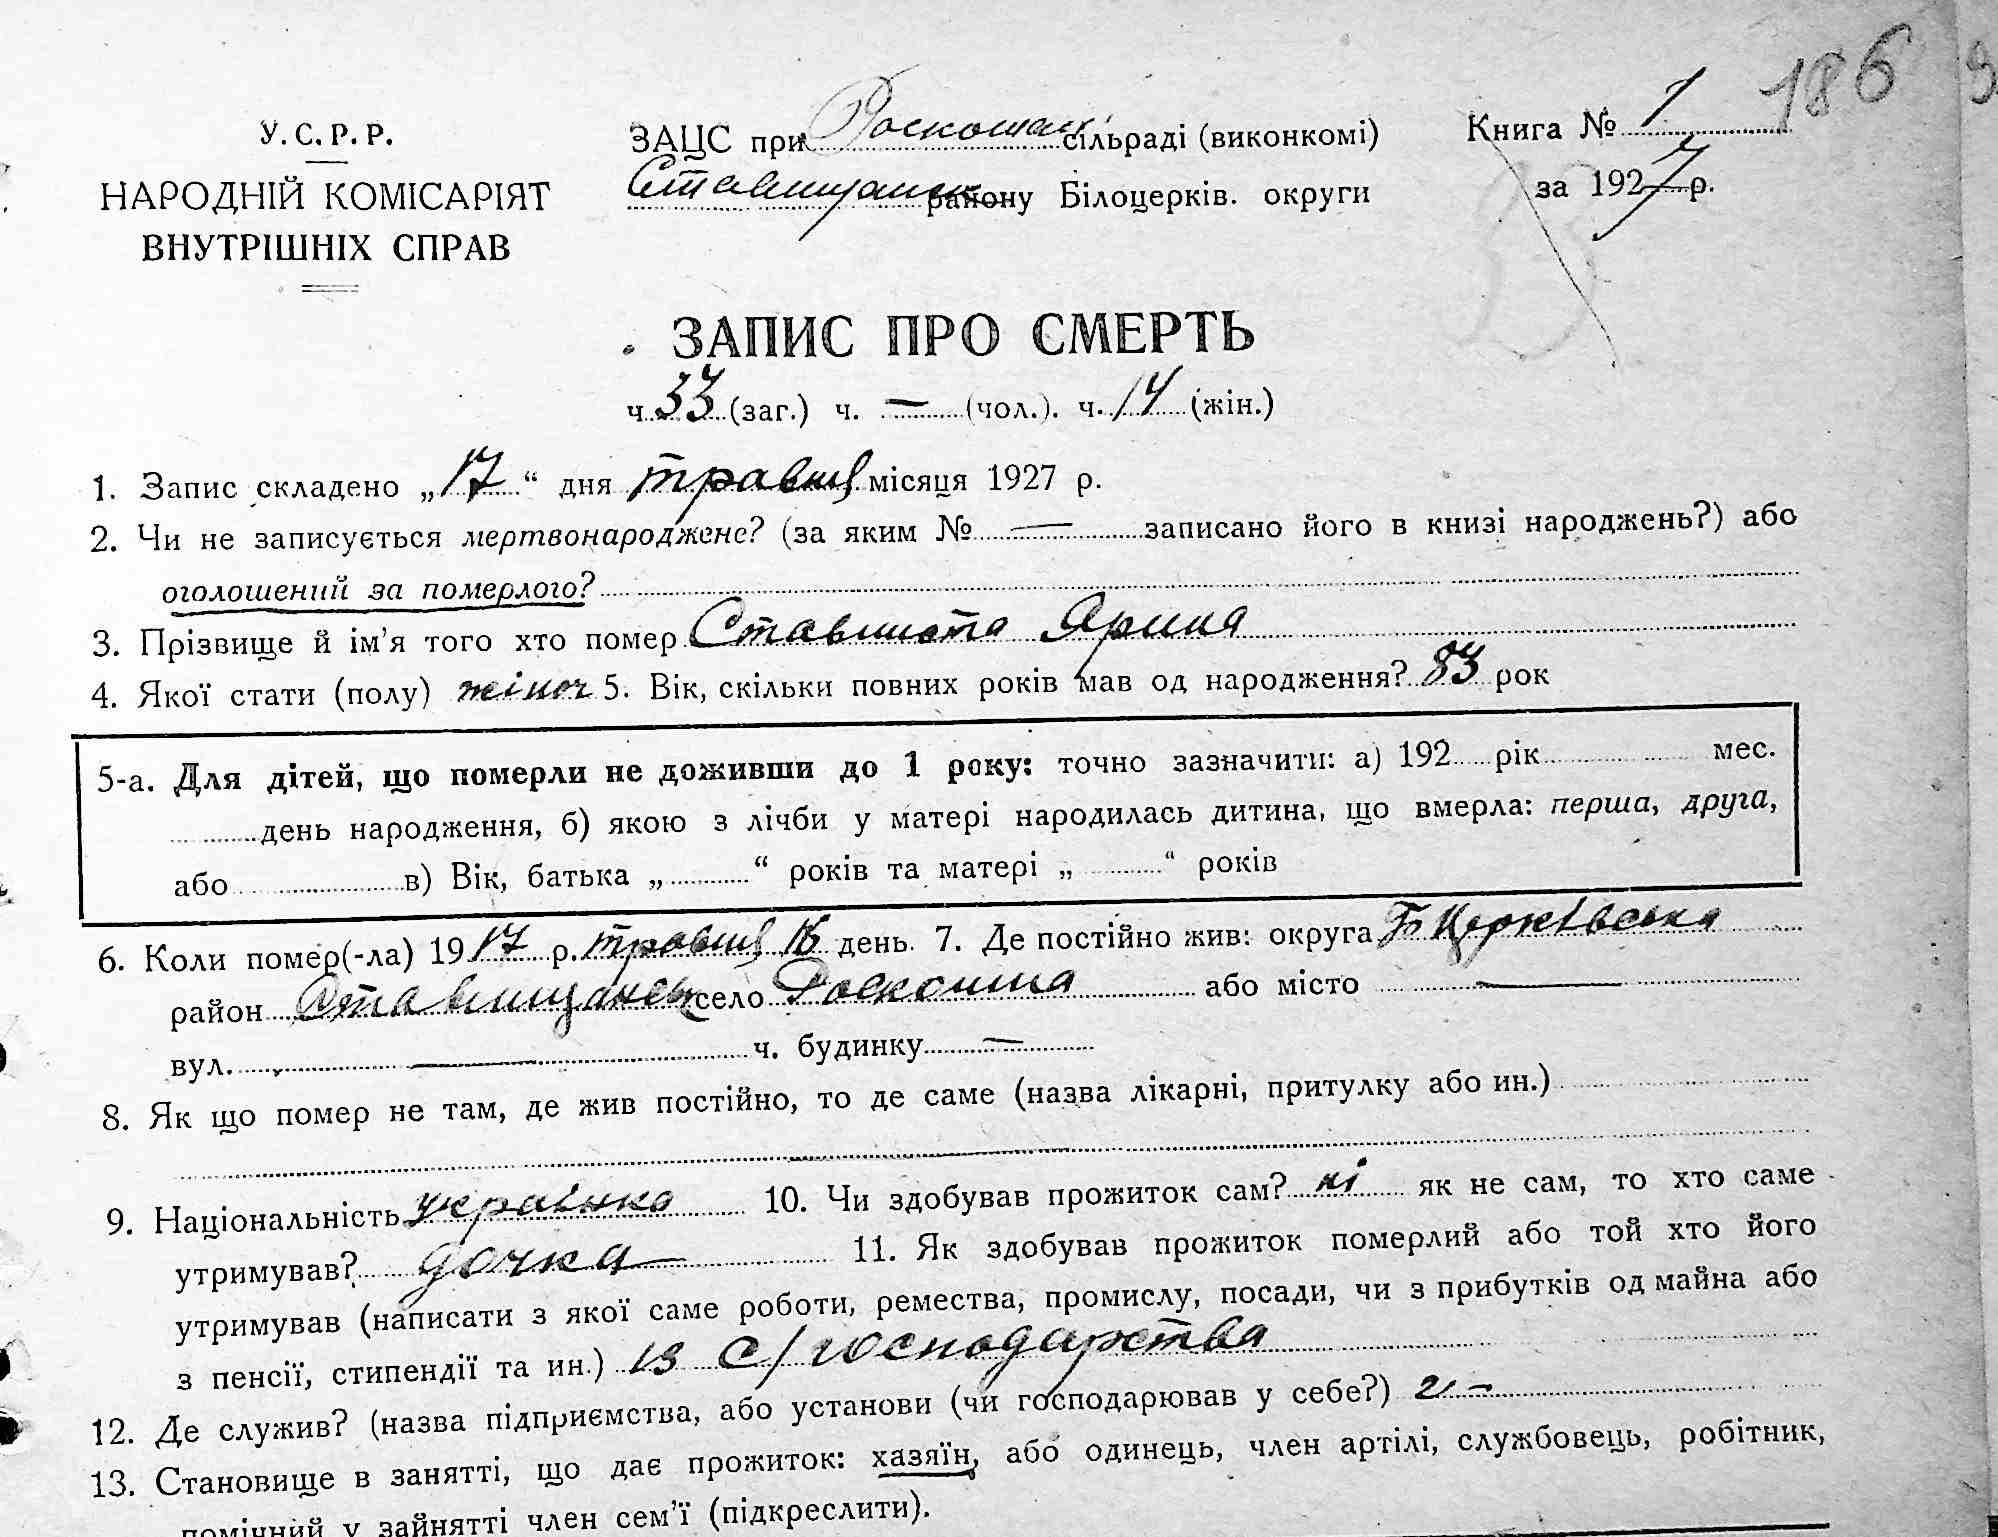 186
У.С.Р.Р.
НАРОДНІЙ КОМІСАРІЯТ
ВНУТРІШНІХ СПРАВ
ЗАЦС при Роскошан сільраді (виконкомі)
Ставищанськ району Білоцерків. округи
Книга № 1
за 1927 р.
ЗАПИС ПРО СМЕРТЬ
ч. 33 (заг.) ч. — (чол.). ч. 14 (жін.)
1. Запис складено „17“ дня травня місяця 1927 р.
2. Чи не записується мертвонароджене? (за яким № — записано його в книзі народжень?) або
оголошений за померлого?
3. Прізвище й ім’я того хто помер Ярина
4. Якої стати (полу) жіноч 5. Вік, скільки повних років мав од народження? 83 рок
5-а. Для дітей, що померли не доживши до 1 року: точно зазначити: а) 192 рік мес.
день народження, б) якою з лічби у матері народилась дитина, що вмерла: перша, друга,
або в) Вік, батька „ “ років та матері „ “ років
6. Коли помер(-ла) 1917 р. травня 16 день. 7. Де постійно жив: округа Б Церківська
район Ставищанськ село Роскошна або місто —
вул. — ч. будинку —
8. Як що помер не там, де жив постійно, то де саме (назва лікарні, притулку або ин.)
9. Національність українка 10. Чи здобував прожиток сам? ні як не сам, то хто саме
утримував? дочка 11. Як здобував прожиток померлий або той хто його
утримував (написати з якої саме роботи, ремества, промислу, посади, чи з прибутків од майна або
з пенсії, стипендії та ин.) із с/господарства
12. Де служив? (назва підприємства, або установи (чи господарював у себе?)
13. Становище в занятті, що дає прожиток: хазяїн, або одинець, член артілі, службовець, робітник,
помічний у зайнятті член сем’ї (підкреслити).